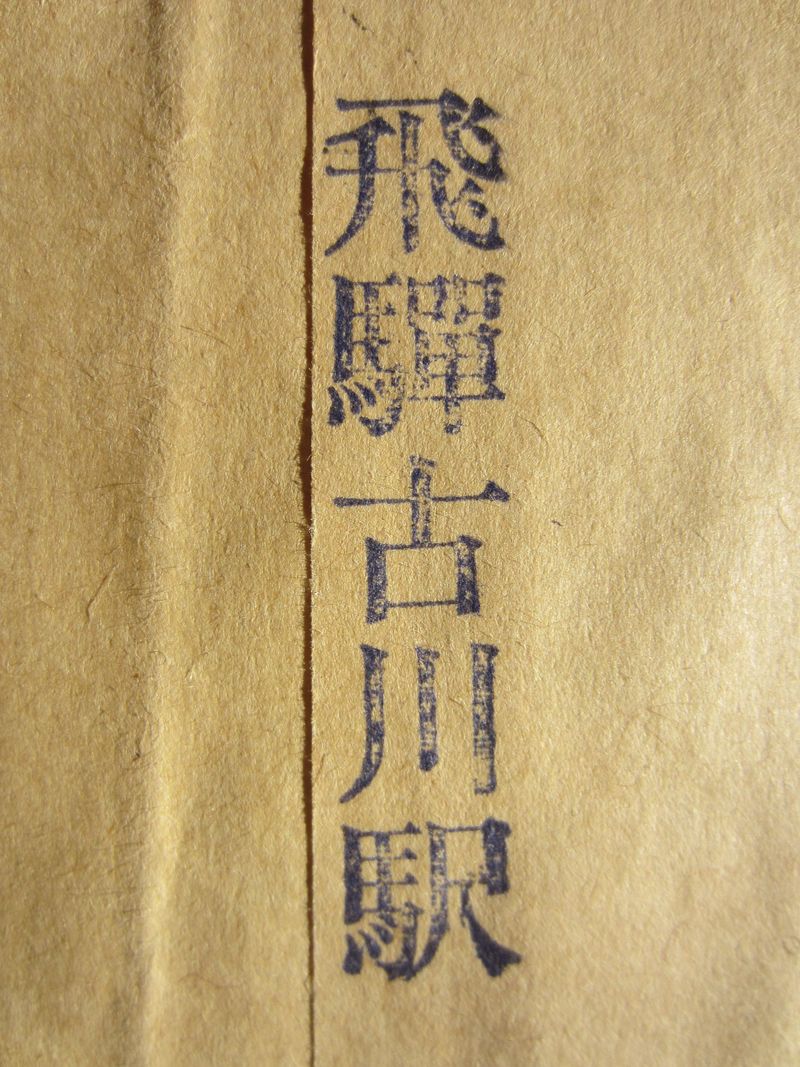 飛驒古川駅